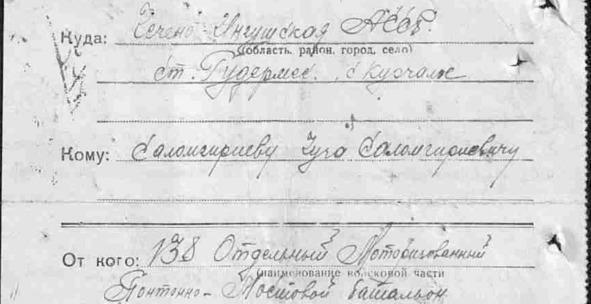 Куда: Чечено Ингушская АССР.
(область, район, город, село)
ст. Гудермес. с Курчали
Кому: Саломгириеву Саломгириевичу
От кого: 138 Отдельный Моторизованный
(наименование войсковой части
Понтонно-Мостовой батальон